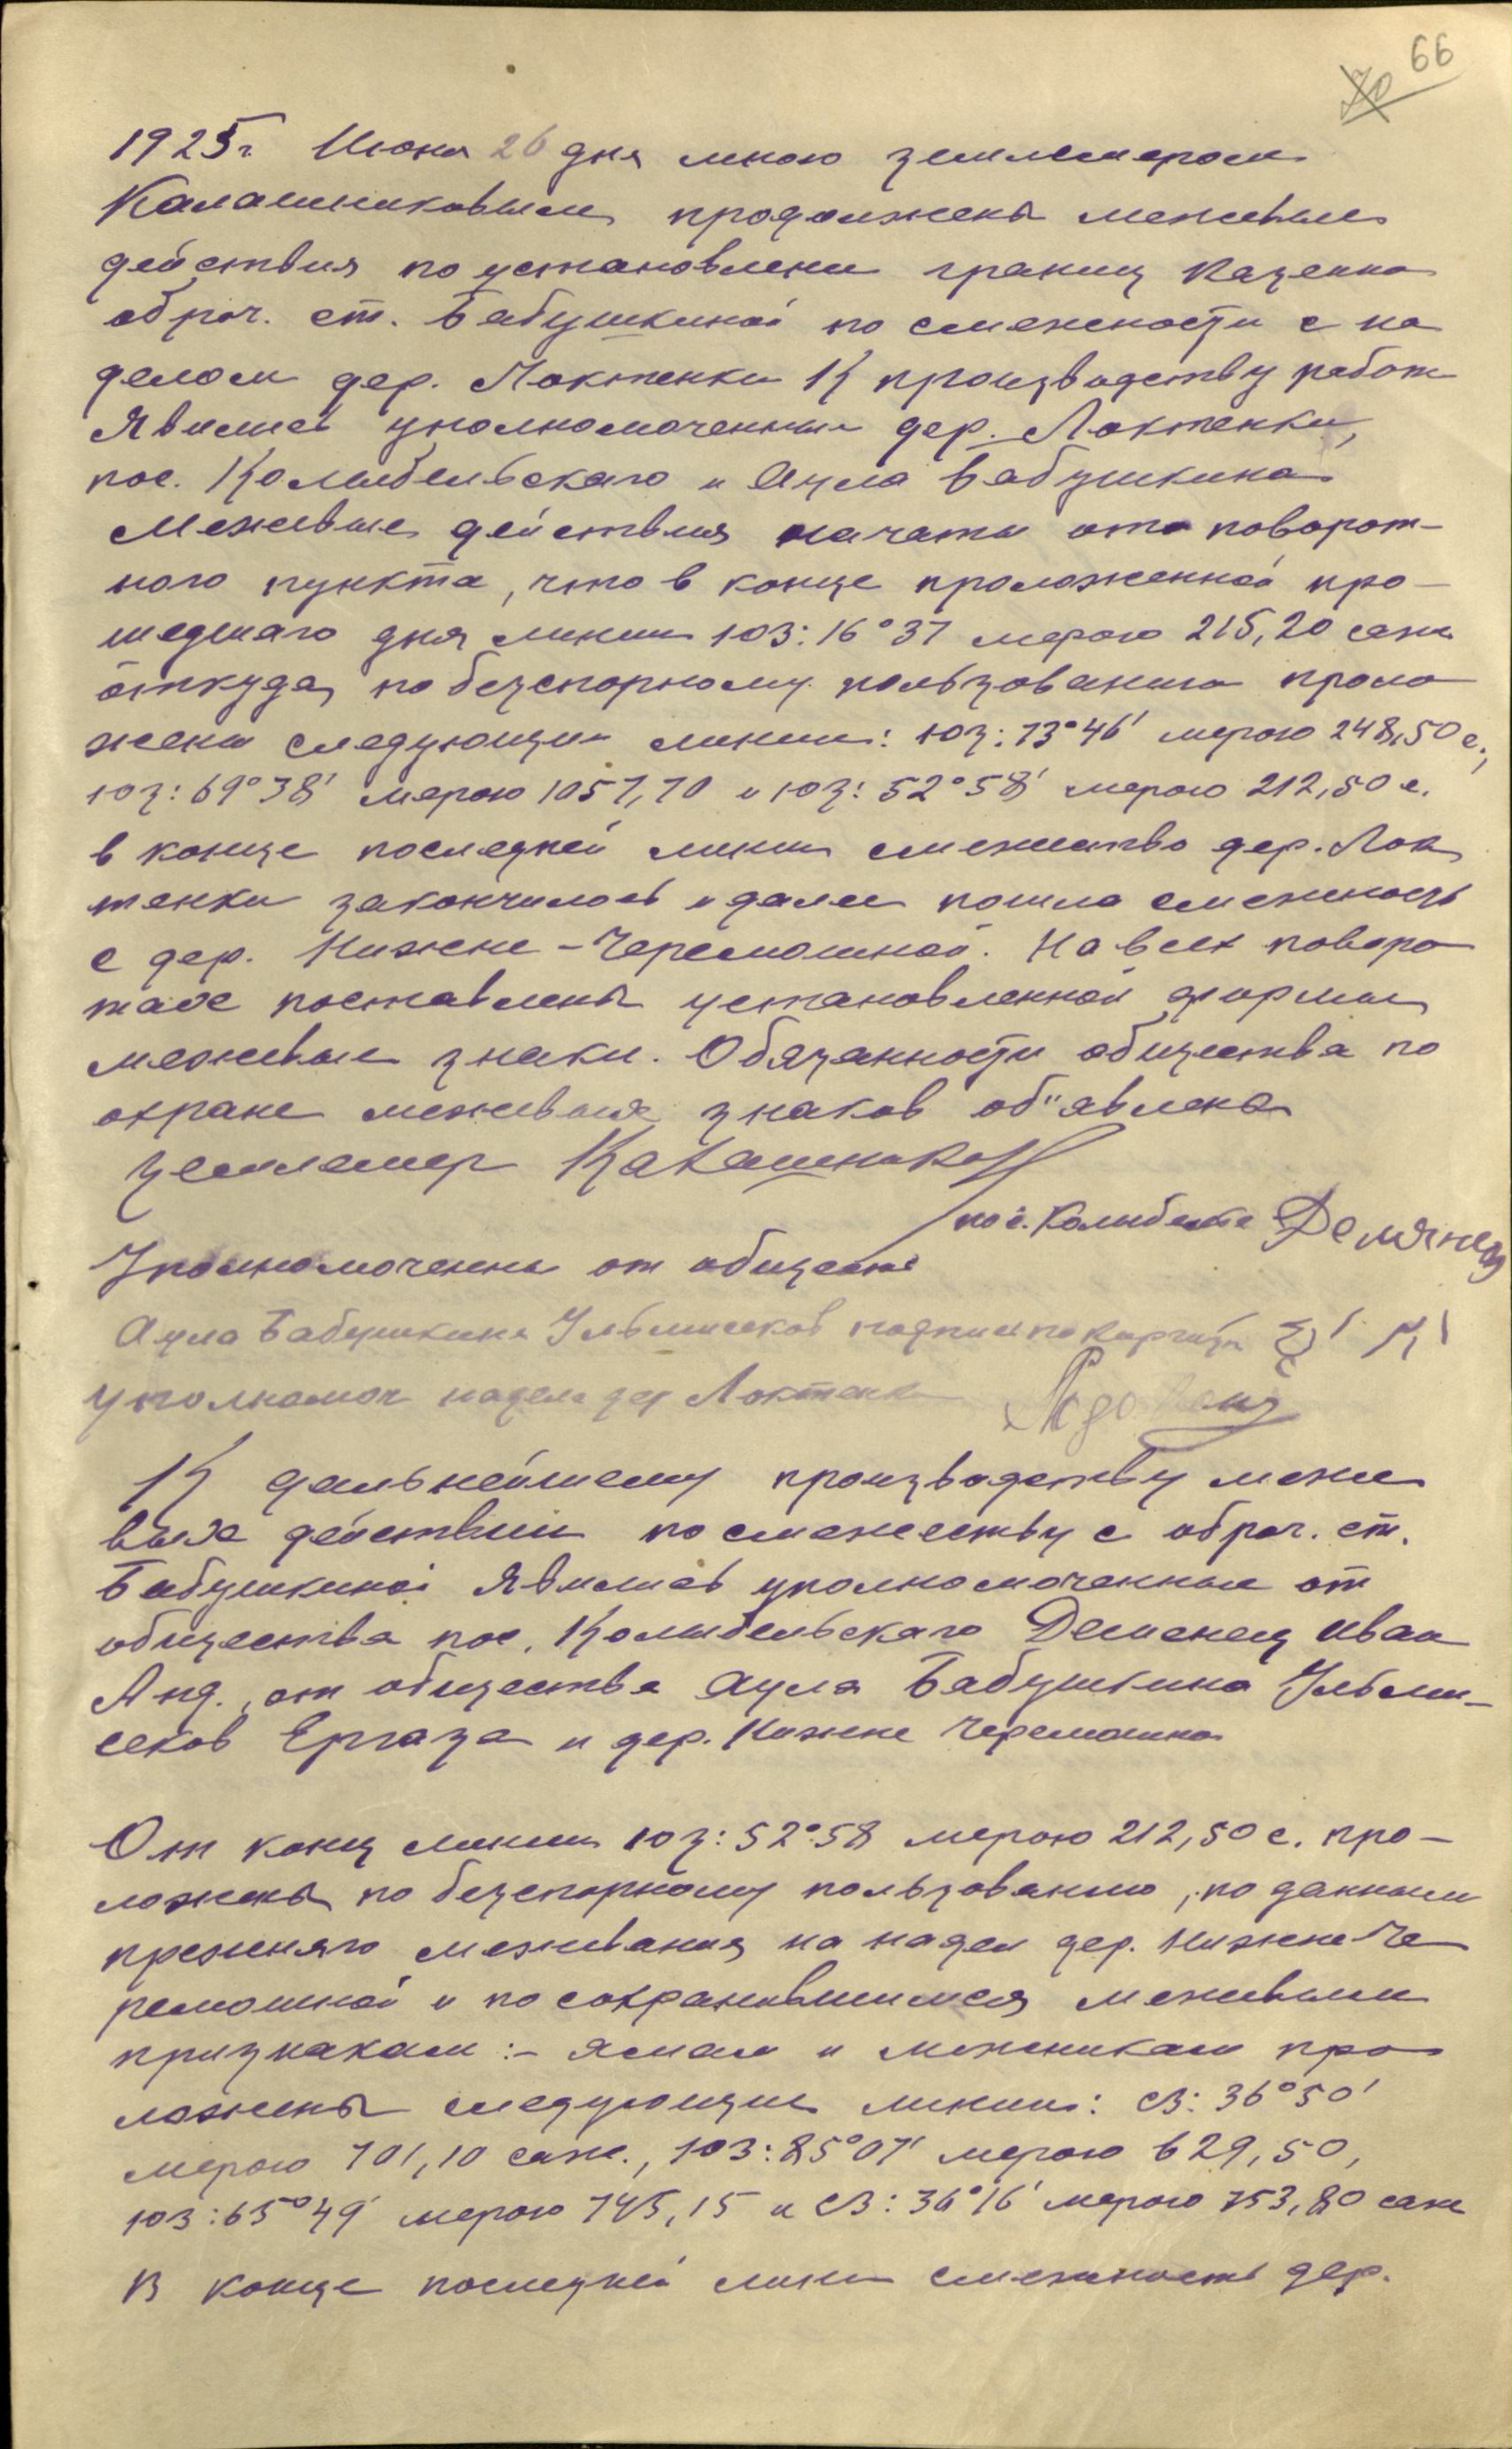 66
70
1925г. Июня 26 дня мною землемером
Калашниковым продолжены межевые
действия по установлени границ Казенно
оброч. ст. Бабушкиной по смежности с на
делом дер. Локтенки К производству работ
явились уполномоченные дер. Локтенки,
пос. Колыбельскаго и Аула Бабушкина
Межевые действия начаты от поворот-
ного пункта, что в конце проложенной про-
шедшаго дня линии ЮЗ: 16°37 мерою 215,20 саж
откуда, по безспорному пользованию проло
жены следующии линии: ЮЗ: 73°46' мерою 248,50 с.,
ЮЗ: 69°38' мерою 1057,70 и ЮЗ: 52°58' мерою 212,50 с.
в конце последней линии смежество дер. Лок
тенки закончилось и далее пошла смежность
с дер. Нижне-Черемошной. На всех поворо
тах поставлены установленной формы
межевые знаки. Обязанности общества по
охране межевых знаков об"явлена
Землемер Калашников
пос. Колыбельск Демянец
Уполномоченны от обществ
Аула Бабушкина Ульмисеков подписи по киргизк
уполномоч надела дер Локтенк
К дальнейшему производству меже
вых действии по смежеству с оброч. ст.
Бабушкиной явились уполномоченные от
общества пос. Колыбельскаго Деменец Иван
Анд., от общества Аула Бабушкина Ульми-
секов Ергаза и дер. Нижне Черемошна
От конц линии ЮЗ: 52°58 мерою 212,50 с. про-
ложены по безспорному пользованию, по данным
прежняго межевания на надел дер. Нижне Че
ремошной и по сохранившимся межевым
признакам :- ямам и межникам про
ложены следующие линии: СЗ: 36°50'
мерою 701,10 саж., ЮЗ: 85°07' мерою 629,50,
ЮЗ: 65°49' мерою 745,15 и СЗ: 36°16' мерою 753,80 саж
В конце последней лини смежность дер.